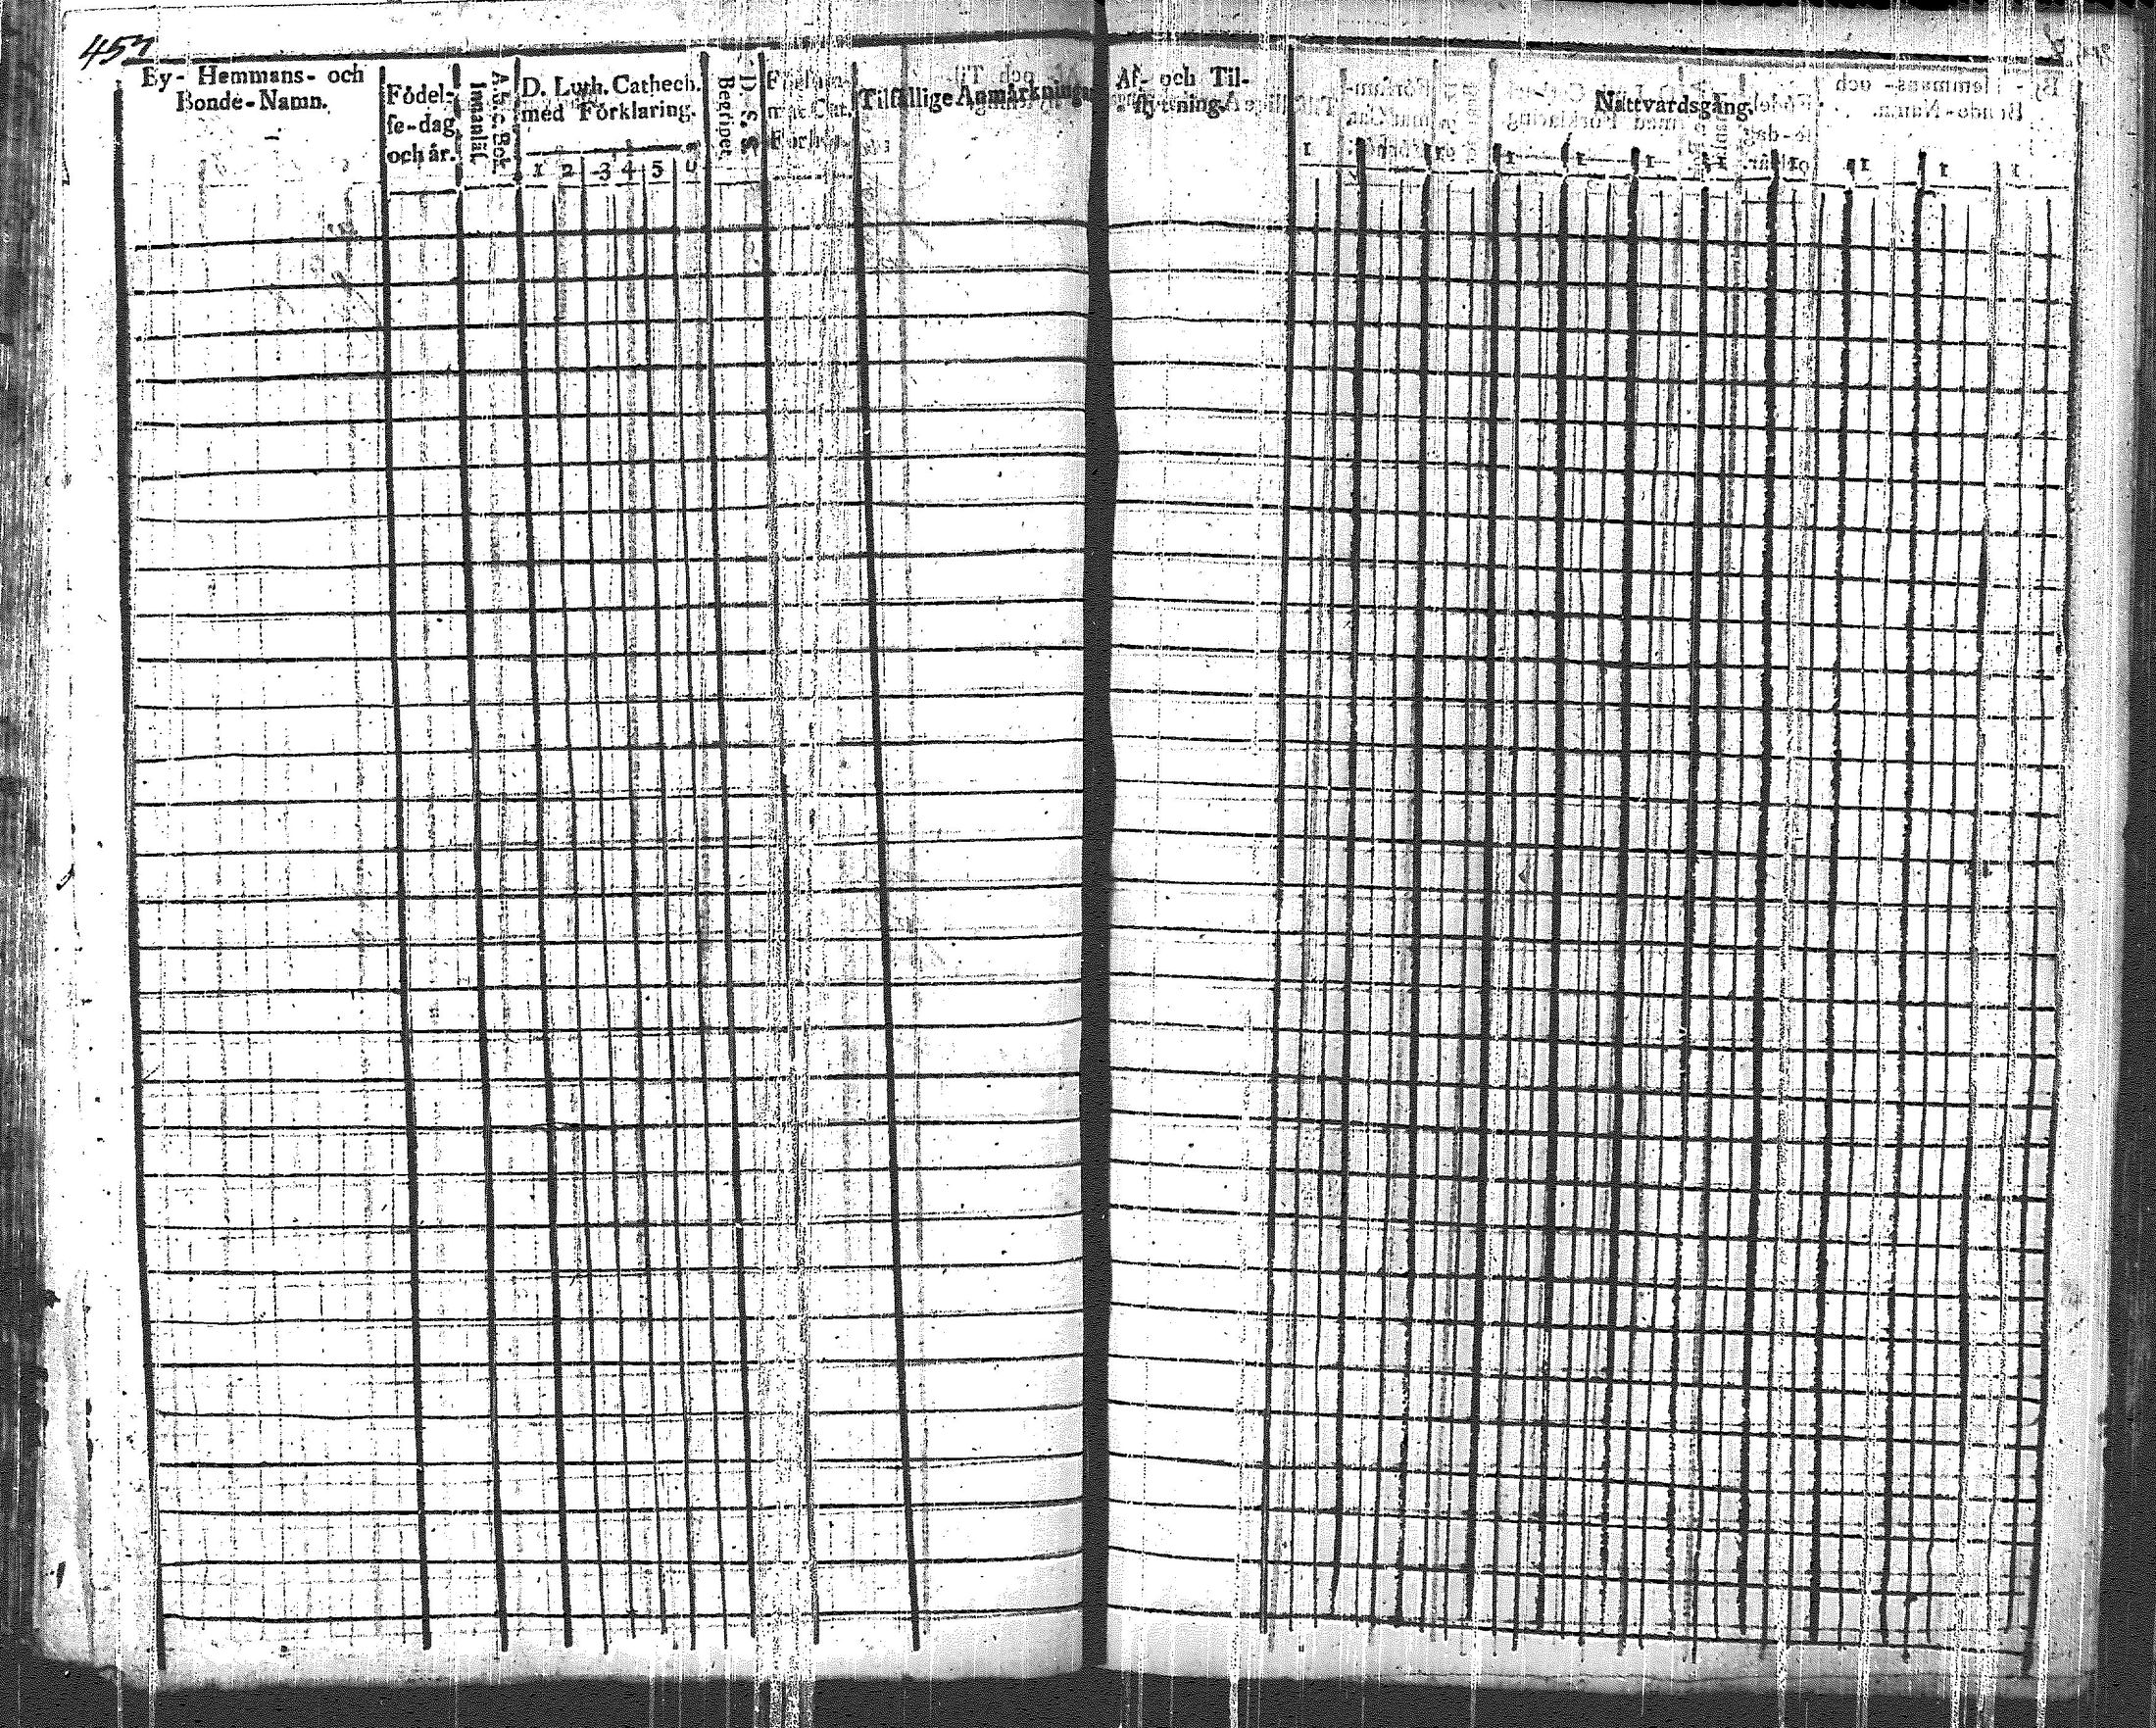 457
By- Hemmans- och
Bonde-Namn.
Födel-
se-dag
och år.
A.b.c. Bok
Innanläs.
D. Luth. Cathech.
med Förklaring.
1 2 3 4 5 6
Begripet.
D. S. S.
Tilfällige Anmärkningar
Af- och Til-
flyttning.
Nattvardsgång.
1 1 1 1 1 1 1 1 1 1